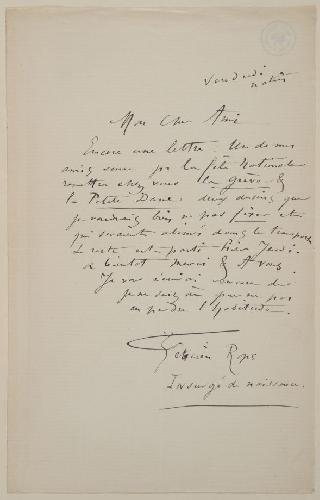 Vendredi
matin
Mon Cher Ami
Encore une lettre. Un de mes
amis pour la fête Nationale
remettra chez vous la Grève &
la Petite Dame: deux dessins que
je voudrais bien ne pas fixer et
qui seraient abimés dans le transport
Le reste est parti hier Jeudi.
à bientôt merci & A vous
Je vous écrirai encore de
je ne sais où pour ne pas
en perdre l'habitude.
Félicien Rops
Insurgé de naissance.